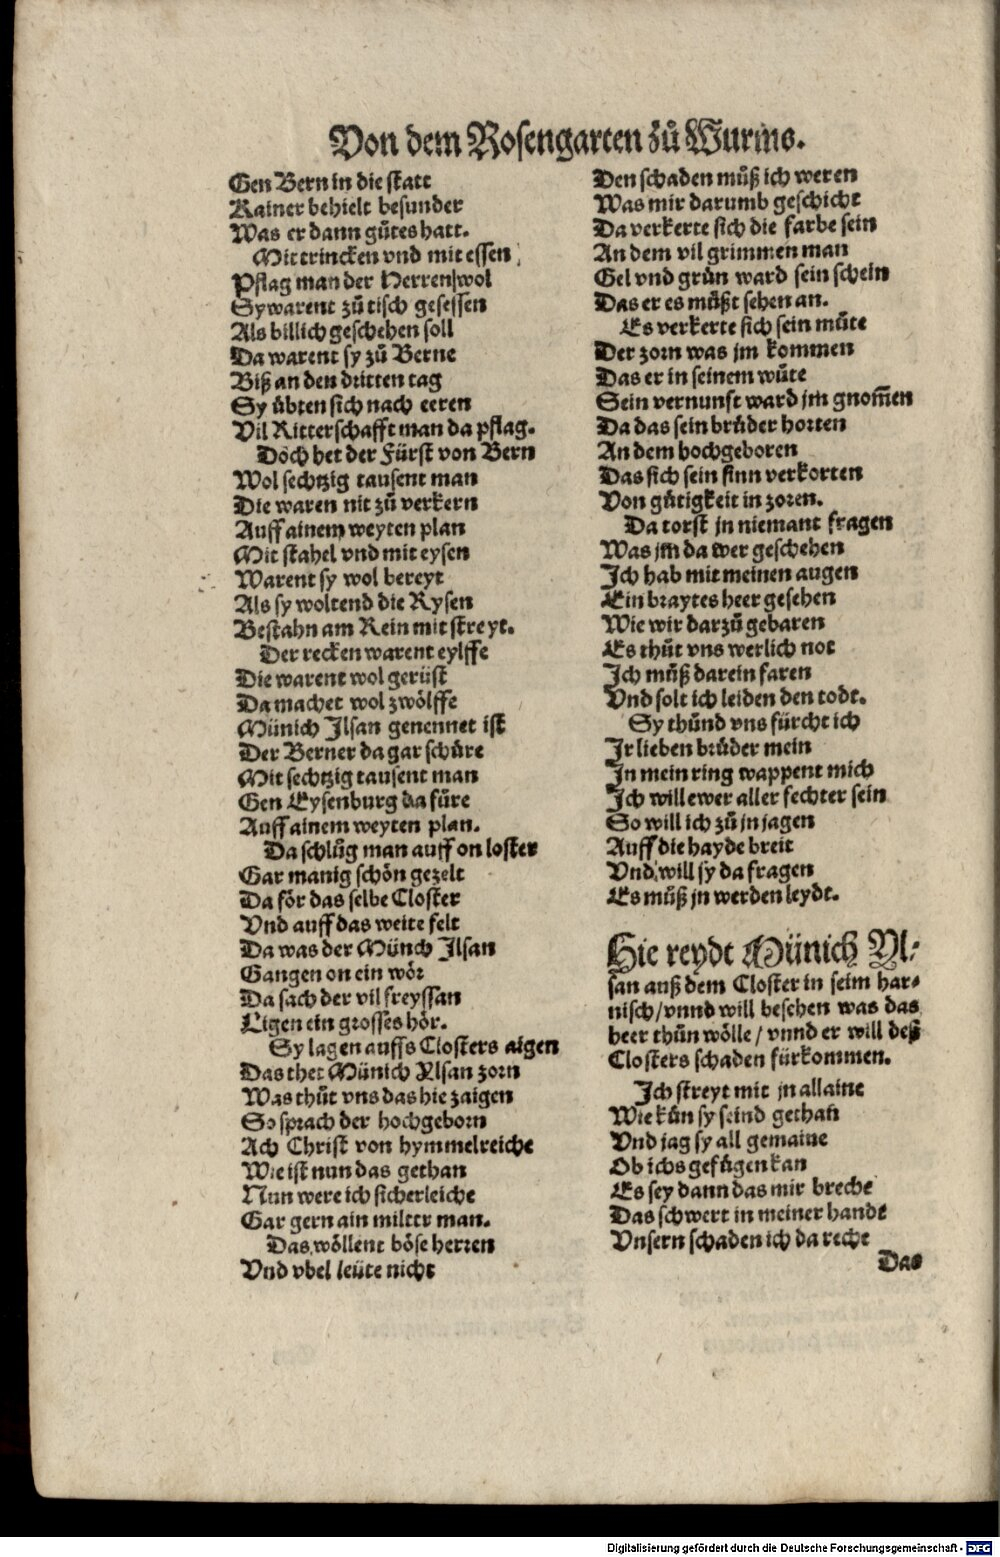 Von dem Rosengarten zů Wurms.
Gen Bern in die statt
Kainer behielt besunder
Was er dann gůtes hatt.
Mit trincken vnd mit essen
Pflag man der Herren wol
Sy warent zů tisch gesessen
Als billich geschehen soll
Da warent sy zů Berne
Biß an den dritten tag
Sy übten sich nach eeren
Vil Ritterschafft man da pflag.
Doch het der Fürst von Bern
Wol sechtzig tausent man
Die waren nit zů verkern
Auff ainem weyten plan
Mit stahel vnd mit eysen
Warent sy wol bereyt
Als sy woltend die Rysen
Bestahn am Rein mit streyt.
Der recken warent eylffe
Die warent wol gerüst
Da machet wol zwölffe
Münich Ilsan genennet ist
Der Berner da gar schůre
Mit sechtzig tausent man
Gen Eysenburg da fůre
Auff ainem weyten plan.
Da schlůg man auff on loster
Gar manig schön gezelt
Da för das selbe Closter
Vnd auff das weite felt
Da was der Münch Ilsan
Gangen on ein wör
Da sach der vil freyssan
Ligen ein grosses hör.
Sy lagen auffs Closters aigen
Das thet Münich Ylsan zorn
Was thůt vns das hie zaigen
So sprach der hochgeborn
Ach Christ von hymmelreiche
Wie ist nun das gethan
Nun were ich sicherleiche
Gar gern ain milter man.
Das wöllent böse herren
Vnd vbel leüte nicht
Den schaden můß ich weren
Was mir darumb geschicht
Da verkerte sich die farbe sein
An dem vil grimmen man
Gel vnd grůn ward sein schein
Das er es můßt sehen an.
Es verkerte sich sein můte
Der zorn was jm kommen
Das er in seinem wůte
Sein vernunft ward jm gnom̃en
Da das sein brůder horten
An dem hochgeboren
Das sich sein sinn verkorten
Von gůtigkeit in zoren.
Da torst jn niemant fragen
Was jm da wer geschehen
Ich hab mit meinen augen
Ein braytes heer gesehen
Wie wir darzů gebaren
Es thůt vns werlich not
Ich můß darein faren
Vnd solt ich leiden den todt.
Sy thůnd vns fürcht ich
Ir lieben brůder mein
In mein ring wappent mich
Ich will ewer aller fechter sein
So will ich zů jn jagen
Auff die hayde breit
Vnd will sy da fragen
Es můß jn werden leydt.
Hie reydt Münich Yl-
san auß dem Closter in seim har-
nisch/vnnd will besehen was das
heer thůn wölle / vnnd er will deß
Closters schaden fürkommen.
Ich streyt mit jn allaine
Wie kůn sy seind gethan
Vnd jag sy all gemaine
Ob ichs gefügen kan
Es sey dann das mir breche
Das schwert in meiner handt
Vnsern schaden ich da reche
Das
Digitalisierung gefördert durch die Deutsche Forschungsgemeinschaft - DFG